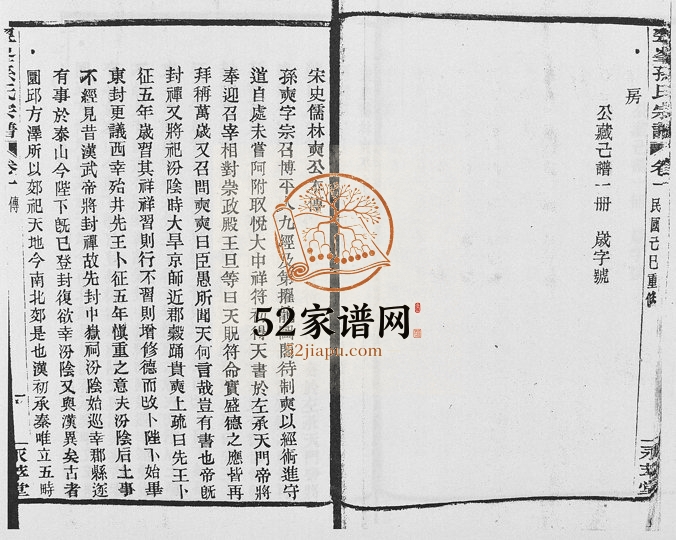 孫氏宗譜 卷一 民國己巳重修
房
公藏己譜一册 歲字號
宋史儒林奭公
孫奭字宗召博平 九經及第擢 待制奭以經術進守
道自處未嘗附取悅大中祥符 得天書於左承天門帝將
奉迎召宰相對崇政殿王旦等曰天貺符命實盛德之應皆再
拜稱萬歲又召問奭奭曰臣愚所聞天何言哉豈有書也帝旣
封禪又將祀汾陰時大旱京師近郡穀踊貴奭上疏曰先王卜
征五年歲習其祥祥習則行不習則增修德而改卜陛下始畢
東封更議西幸殆非先王卜征五年愼重之意夫汾陰后土事
不經見昔漢武帝將封禪故先封中嶽祠汾陰始巡幸郡縣逐
有事於泰山今陛下旣已登封復欲幸汾陰又與漢異矣古者
圜邱方澤所以郊祀天地今南北郊是也漢初承秦唯立五時
氏宗譜 卷一 傳
一
52家谱网
52jiapu.com